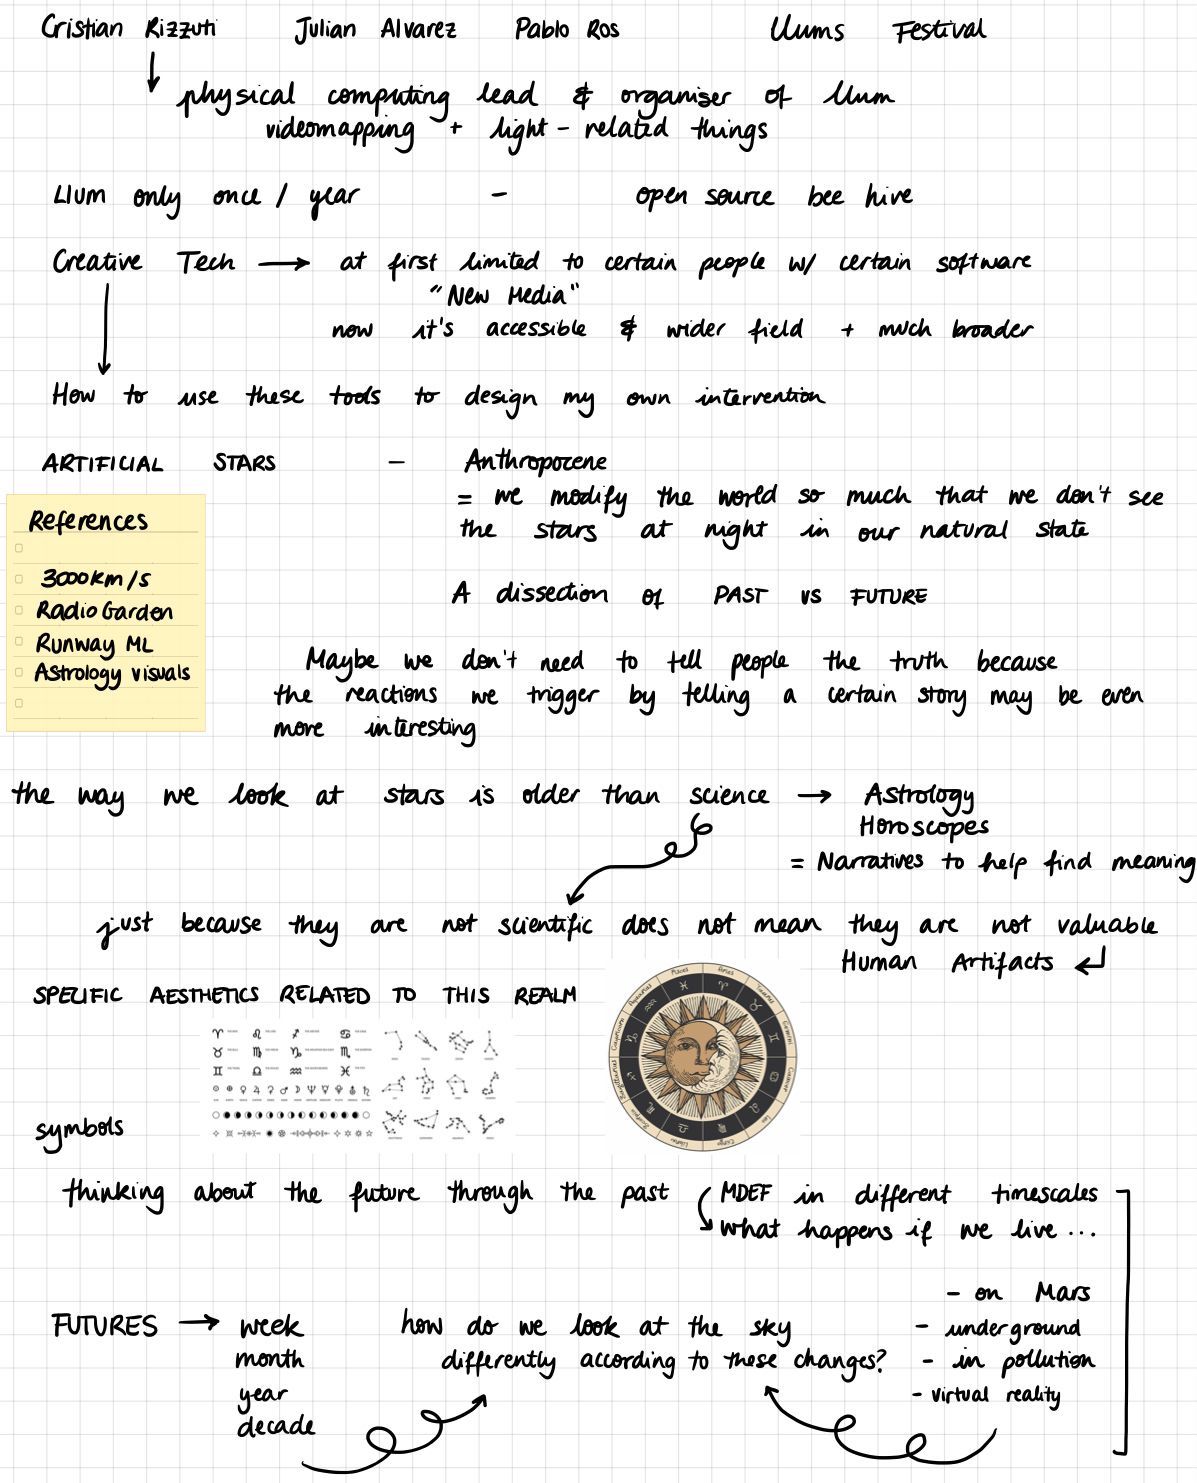 Cristian Rizzuti Julian Alvarez Pablo Ros Llums Festival
physical computing lead & organiser of llum
videomapping + light - related things
Llum only once / year - open source bee hive
Creative Tech → at first limited to certain people w/ certain software
"New Media"
now it's accessible & wider field + much broader
How to use these tools to design my own intervention
ARTIFICIAL STARS - Anthropocene
= we modify the world so much that we don't see
the stars at night in our natural state
References
3000km/s
Radio Garden
Runway ML
Astrology visuals
A dissection of PAST vs FUTURE
Maybe we don't need to tell people the truth because
the reactions we trigger by telling a certain story may be even
more interesting
the way we look at stars is older than science → Astrology
Horoscopes
= Narratives to help find meaning
just because they are not scientific does not mean they are not valuable
Human Artifacts
SPECIFIC AESTHETICS RELATED TO THIS REALM
Pisces Aries Taurus Gemini Cancer Leo Virgo Libra Scorpio Sagittarius Capricorn Aquarius
symbols
thinking about the future through the past MDEF in different timescales
what happens if we live...
- on Mars
FUTURES → week how do we look at the sky - underground
month differently according to these changes? - in pollution
year - virtual reality
decade